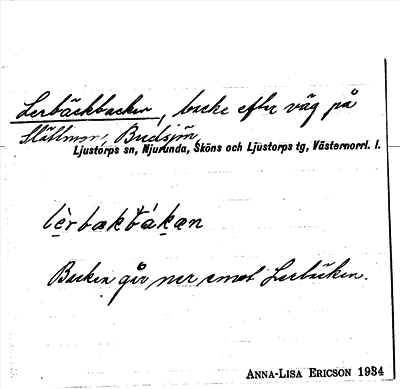 Lerbäckbacken, backe efter väg på
Slättmon, Brudsjön,
Ljustorps sn, Njurunda, Sköns och Ljustorps tg, Västernorrl. l.
lèrbækbákæn
Backen går ner emot Lerbäcken.
ANNA-LISA ERICSON 1934